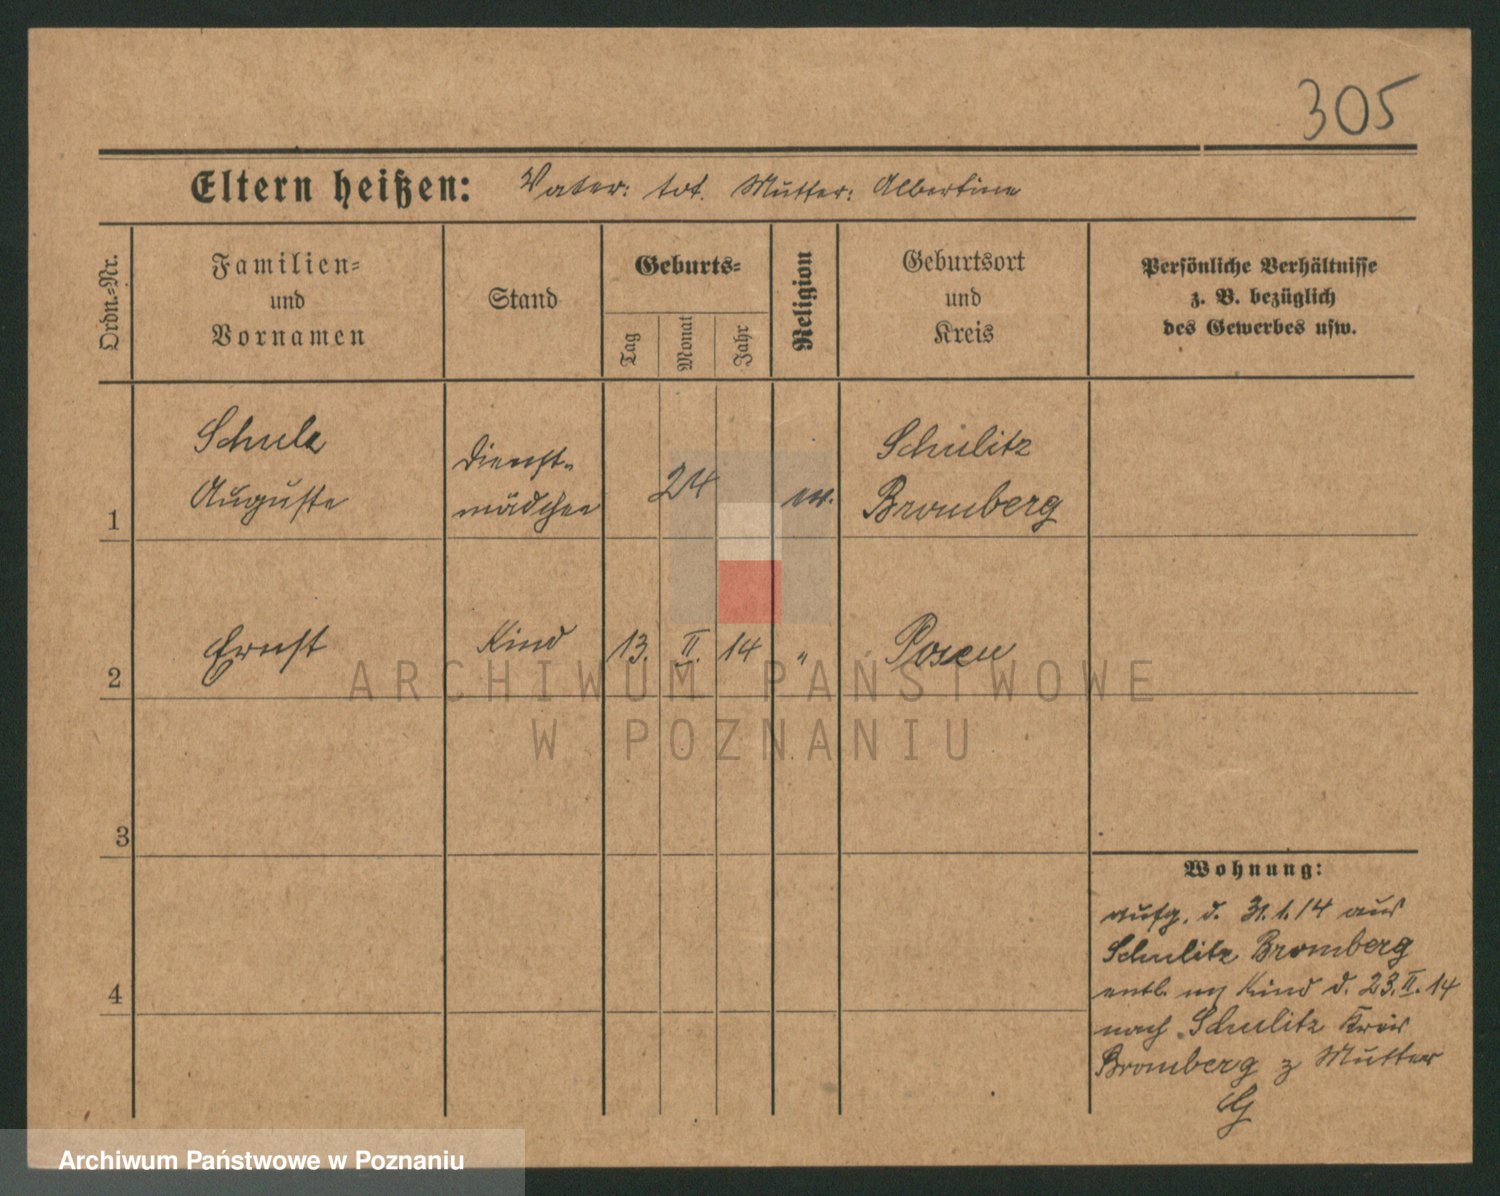 305
Eltern heißen: Vater: tot. Mutter: Albertine
Ordn.-Nr.
Familien-
und
Vornamen
Stand
Geburts-
Tag
Monat
Jahr
Religion
Geburtsort
und
Kreis
Persönliche Verhältnisse
z. B. bezüglich
des Gewerbes usw.
1
Schulz
Auguste
Dienst-
mädchen
24
ev.
Schulitz
Bromberg
2
Ernst
Kind
13.
II.
14
"
Posen
3
4
Wohnung:
aufg. d. 31.1.14 aus
Schulitz Bromberg
entl. m Kind d. 23.II.14
nach Schulitz Kreis
Bromberg z Mutter
ARCHIWUM PAŃSTWOWE
W POZNANIU
Archiwum Państwowe w Poznaniu